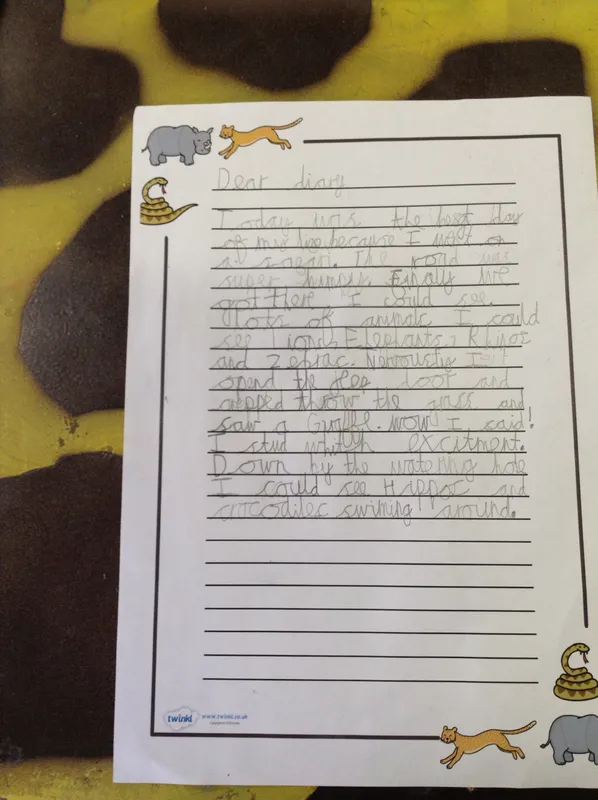 Dear diary
Today was the best day
of my life because I went on
a safari. The road was
super bumpy. Finaly we
got there I could see
lots of animals I could
see Lions, Elephants, Rhinos
and Zebras. Nervously I
opend the door and
stepped throw the grass and
saw a Giraffe. wow I said!
I stud with excitment.
Down by the watering hole
I could see Hippos and
crocodiles swiming around.
twinkl www.twinkl.co.uk